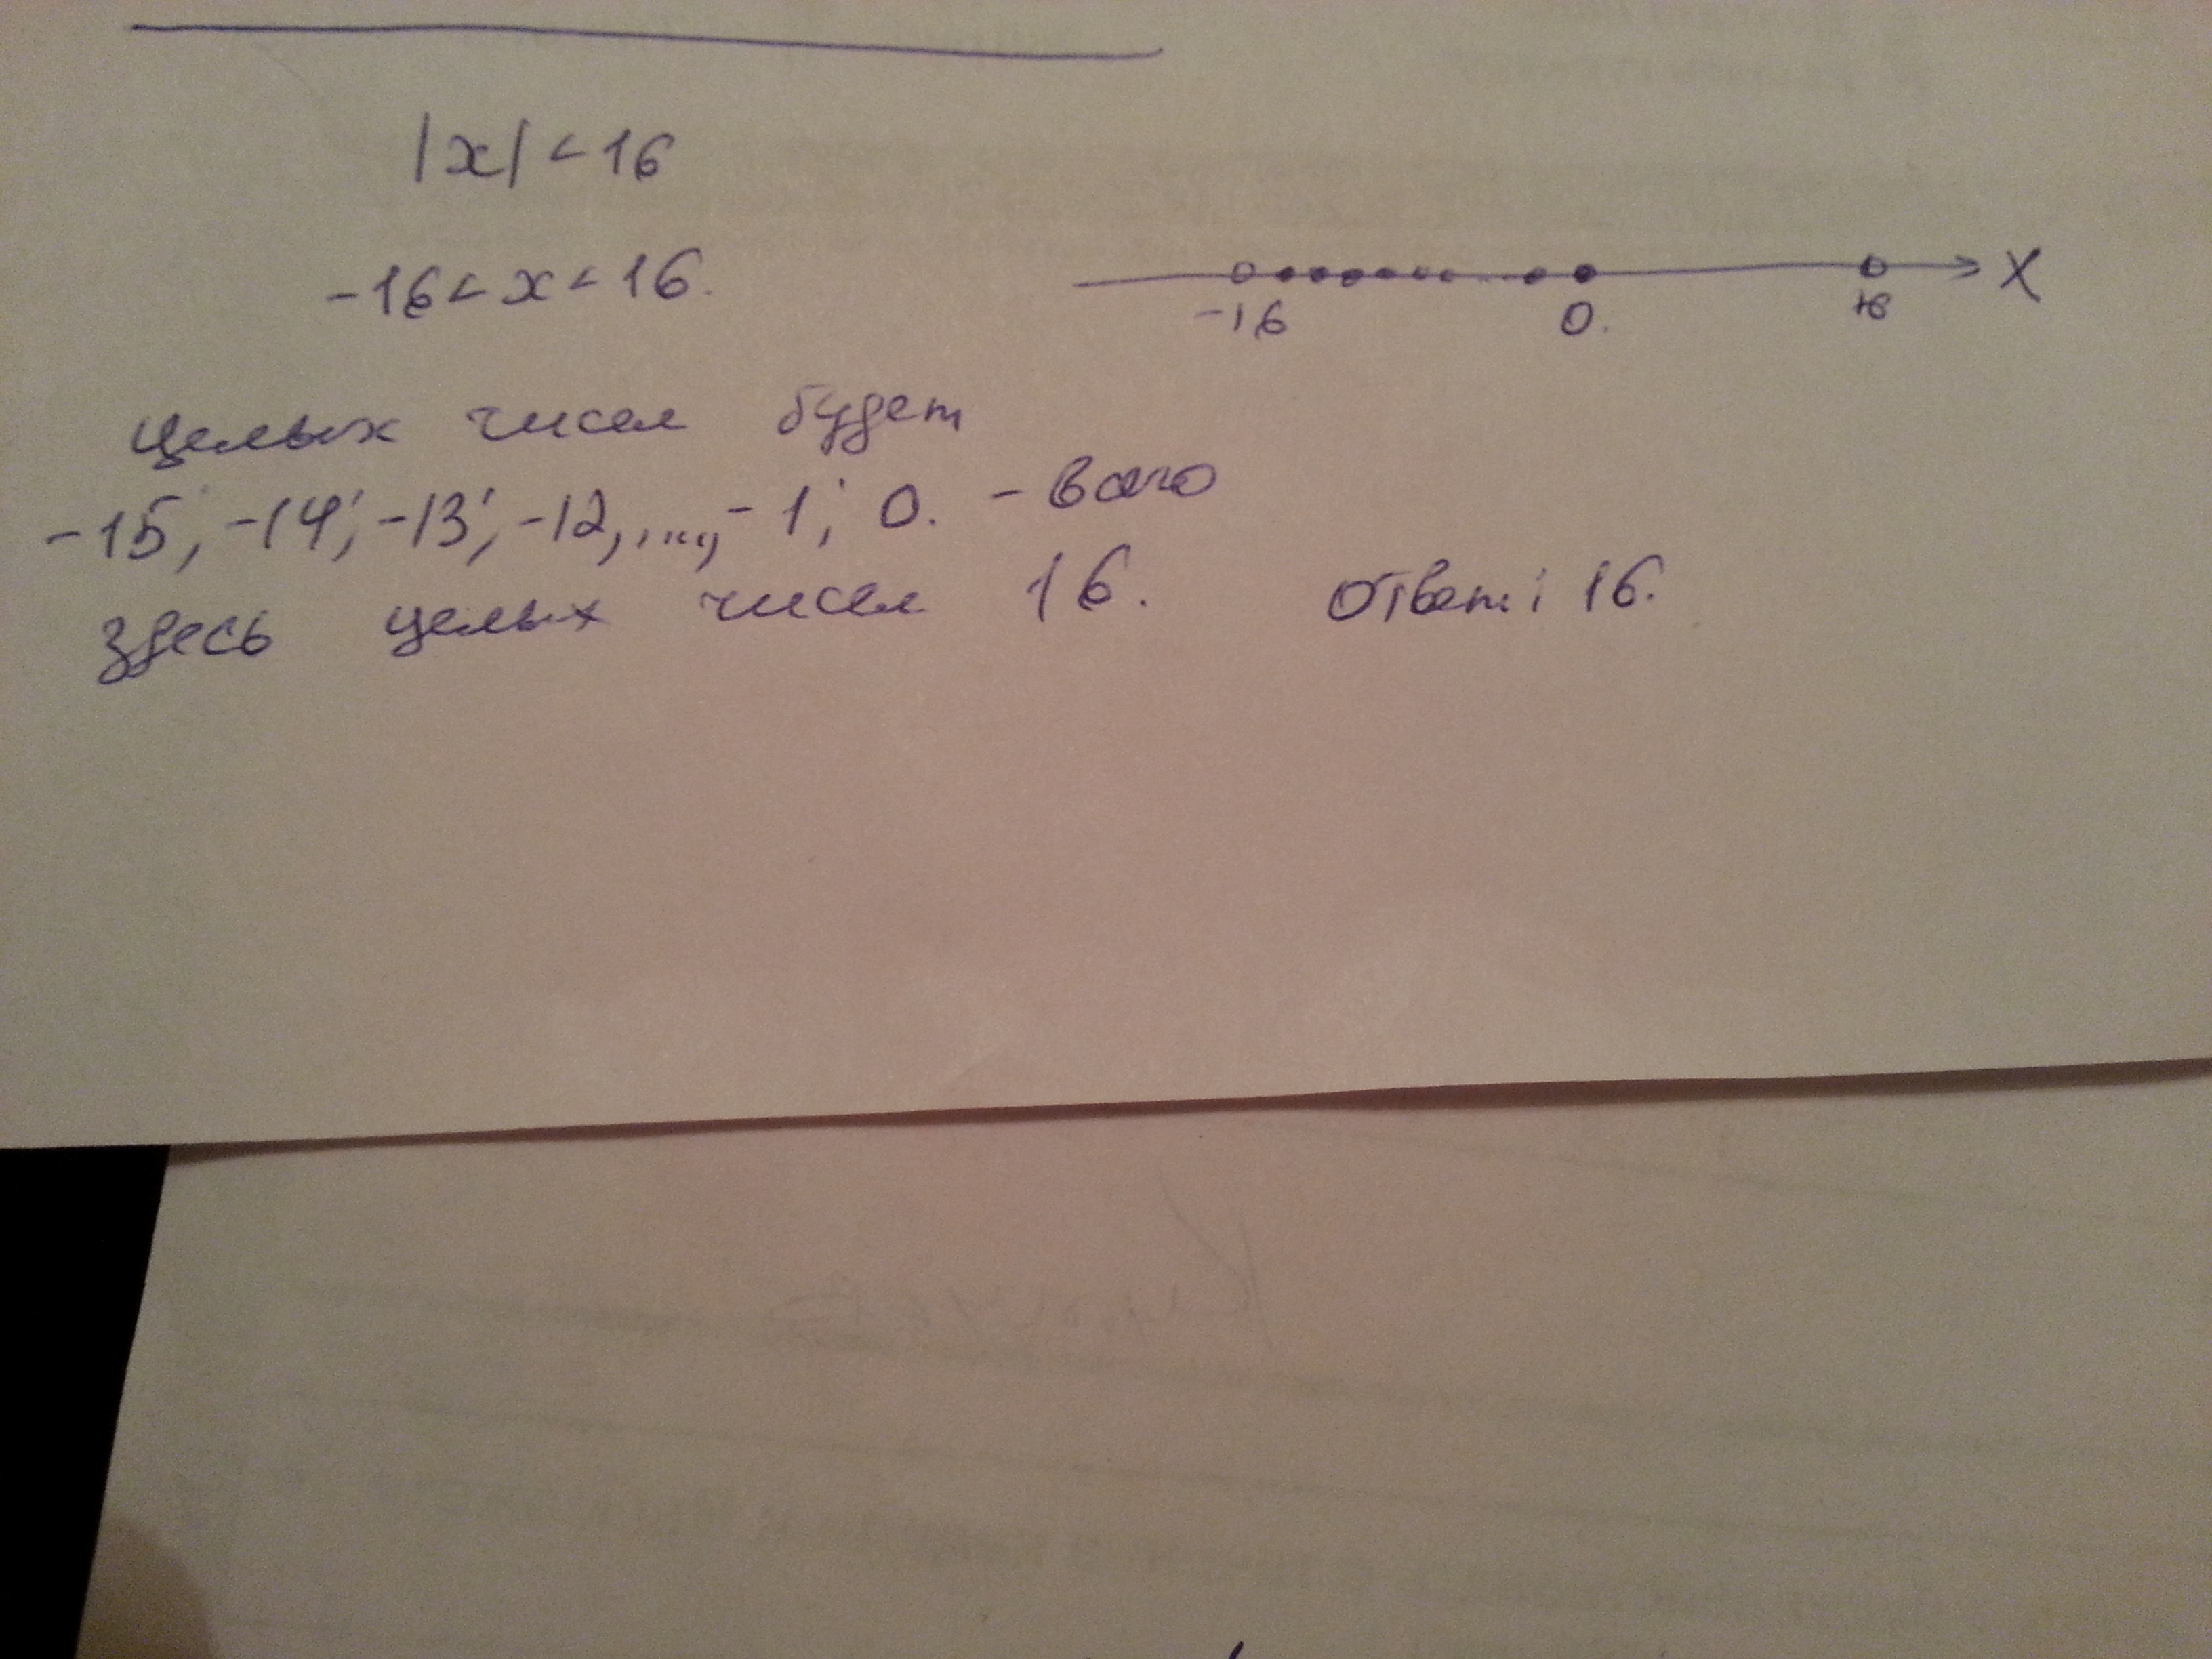 |x| < 16
-16 < x < 16.
-16 0. 16 X
целых чисел будет
-15; -14; -13; -12, ..., -1; 0. - всего
здесь целых чисел 16. Ответ: 16.